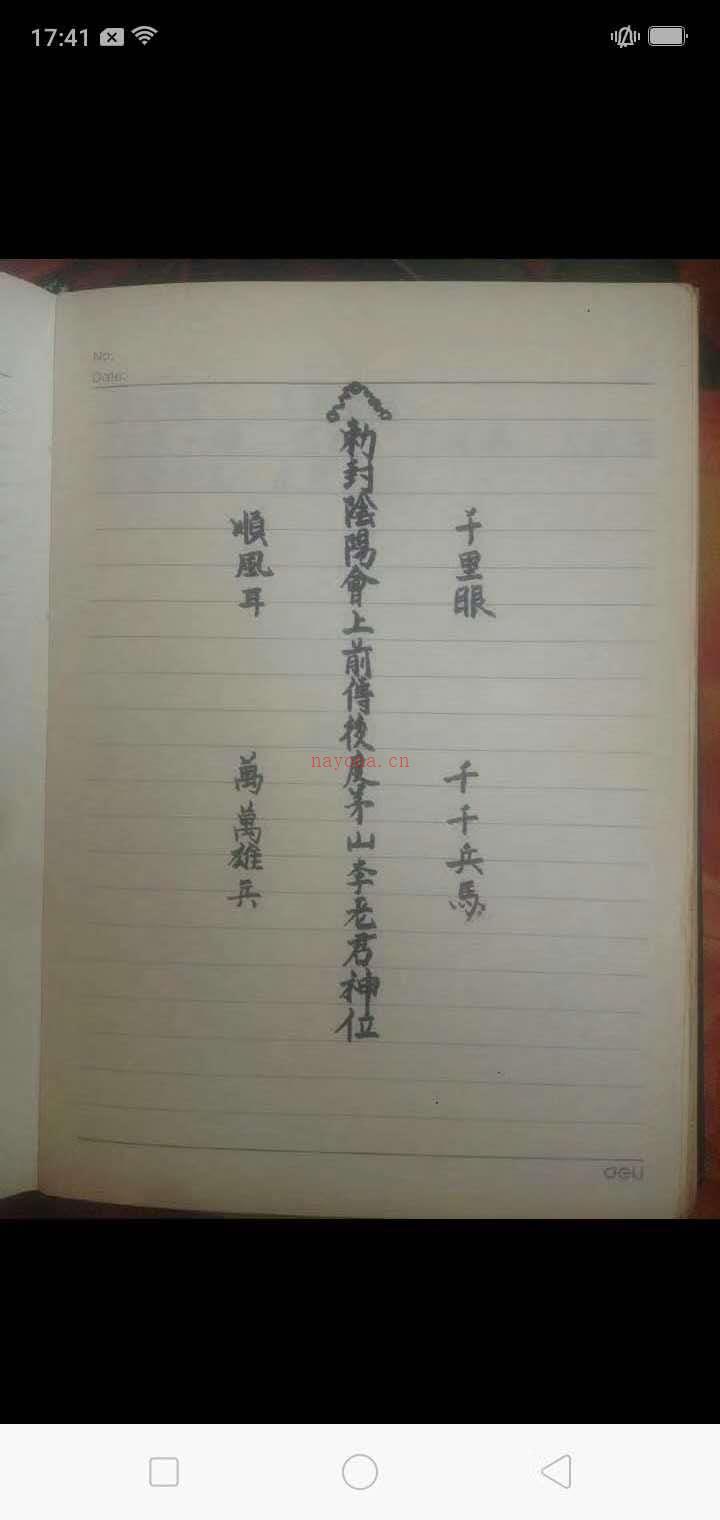 17:41
No:
Date:
千里眼
千千兵馬
勅封陰陽會上前傳後度茅山李老君神位
順風耳
萬萬雄兵
nayona.cn
deli